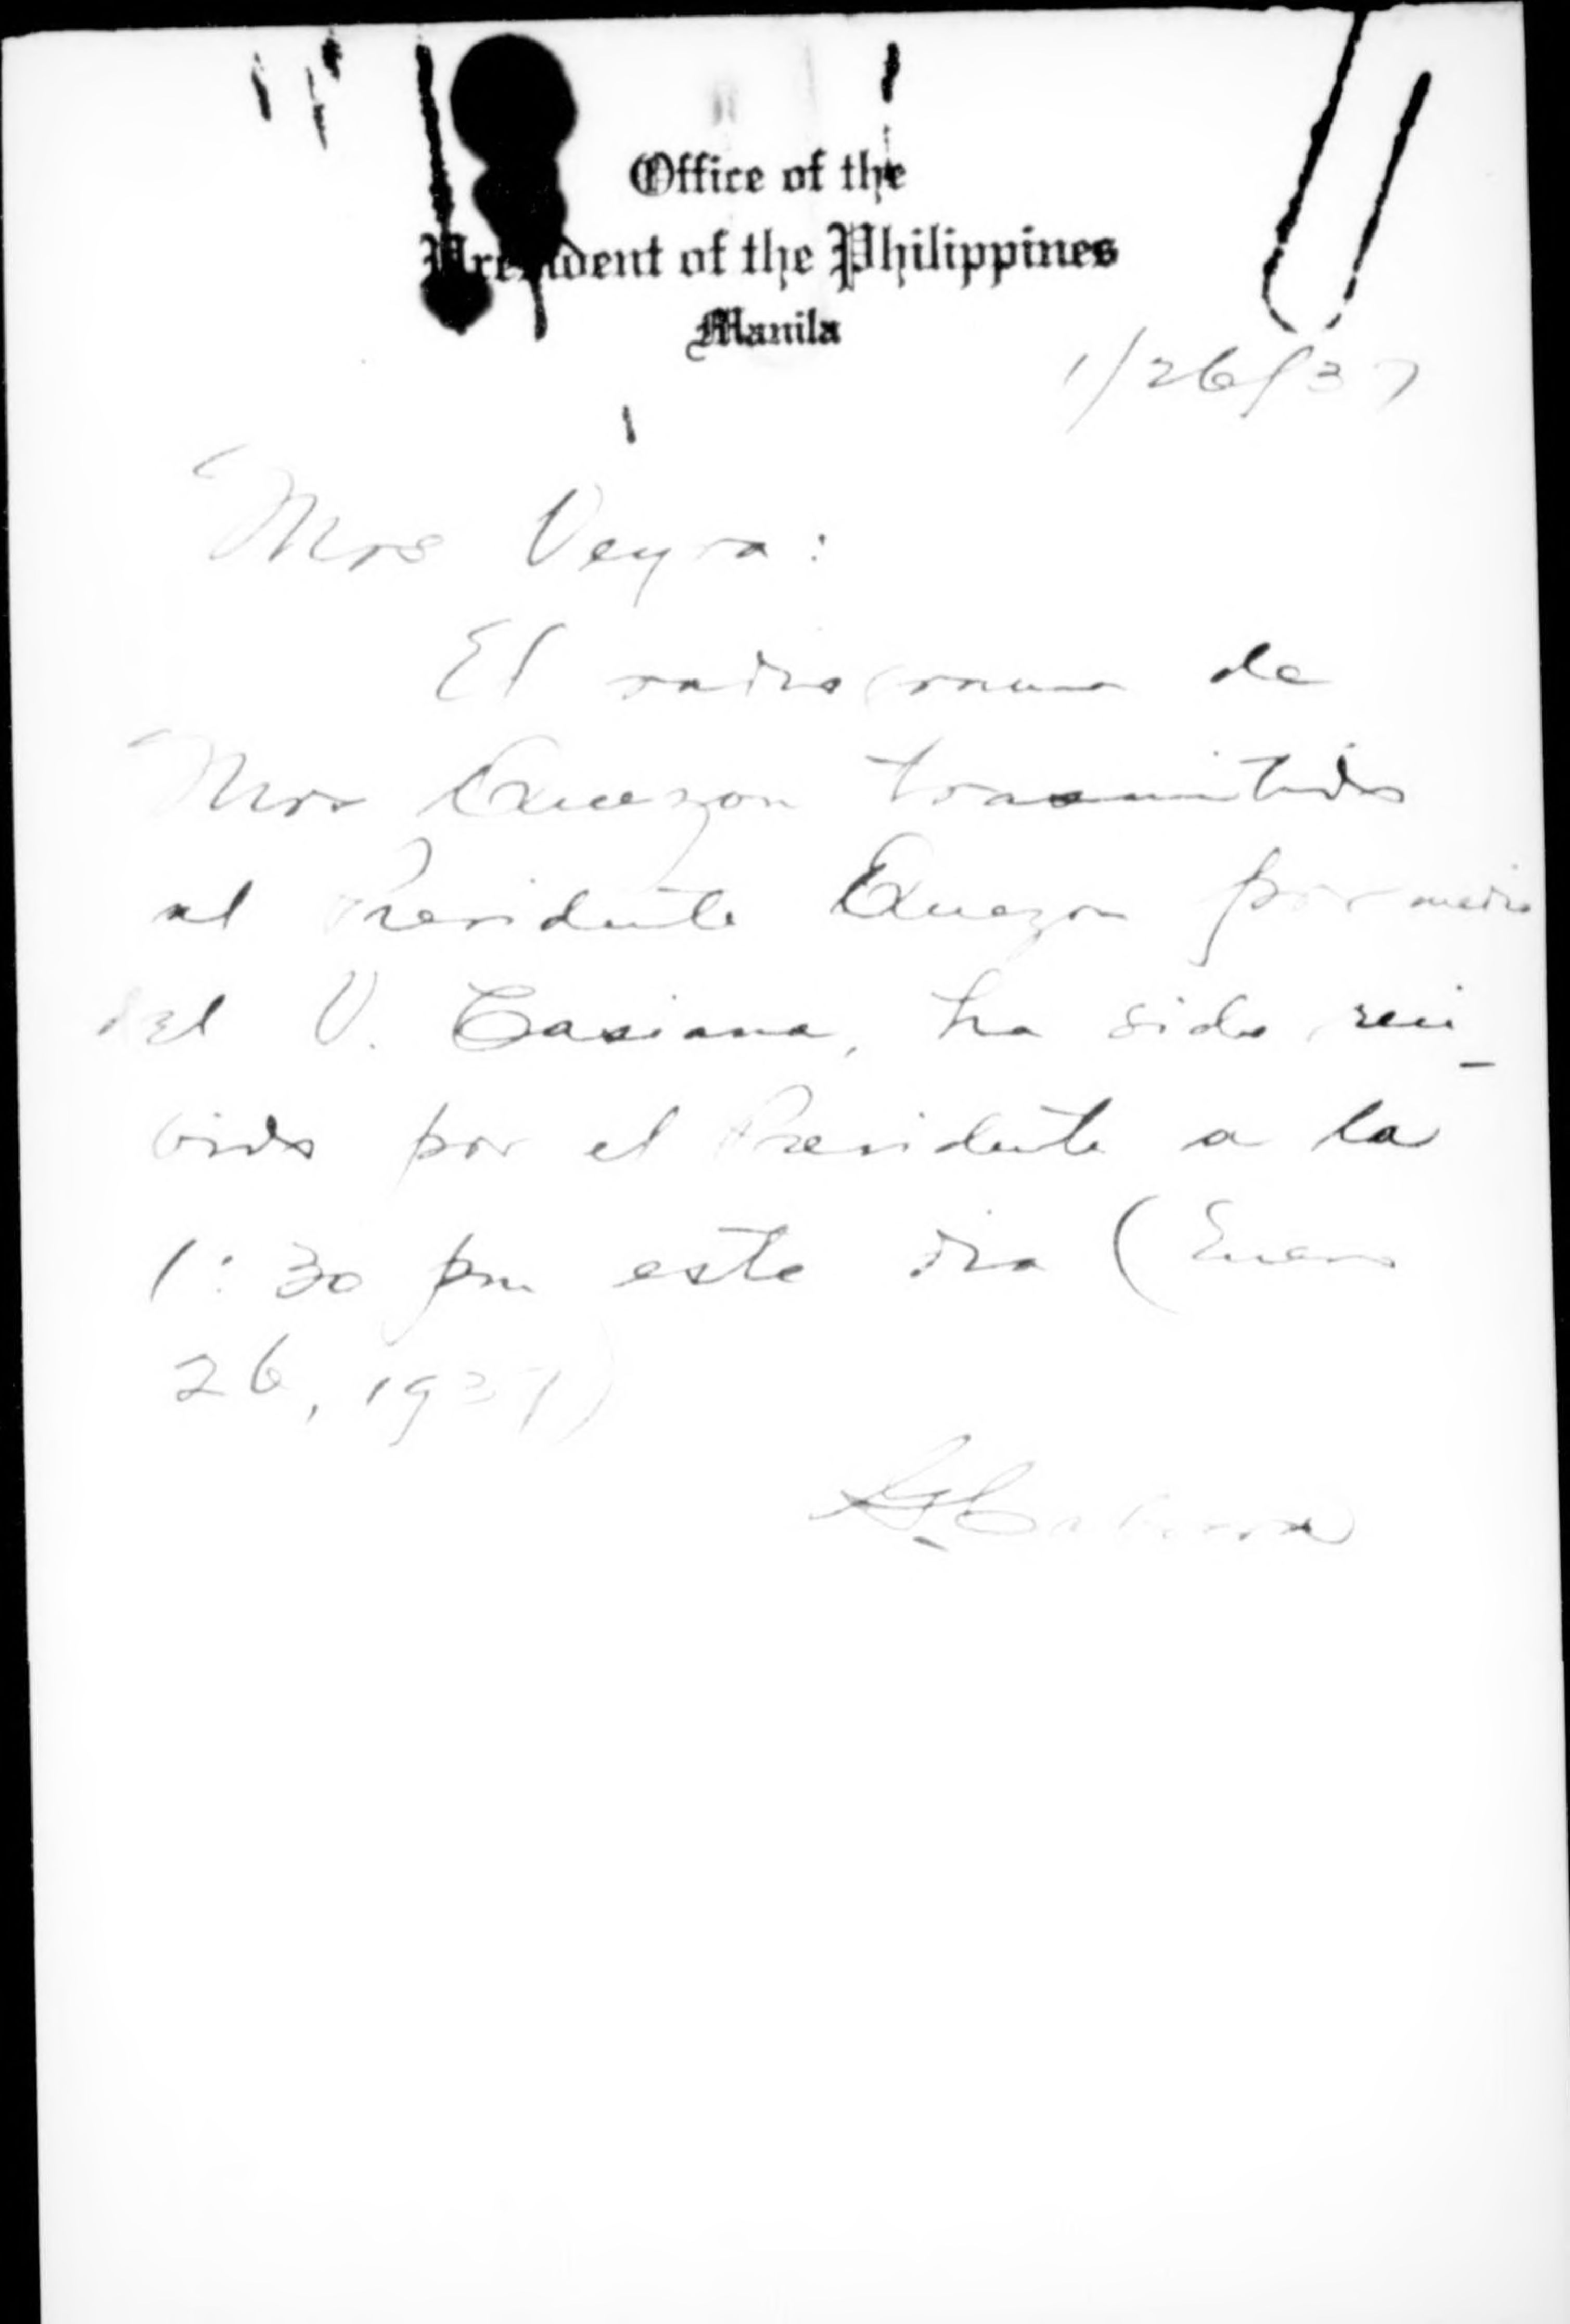 Office of the
President of the Philippines
Manila
1/26/37
Mrs Veyra:
El radiograma de
Mrs Quezon trasmitido
al Presidente Quezon por medio
del V. Casiana, ha sido reci-
bido por el Presidente a la
1:30 pm este dia (Enero
26, 1937)
Cabrera